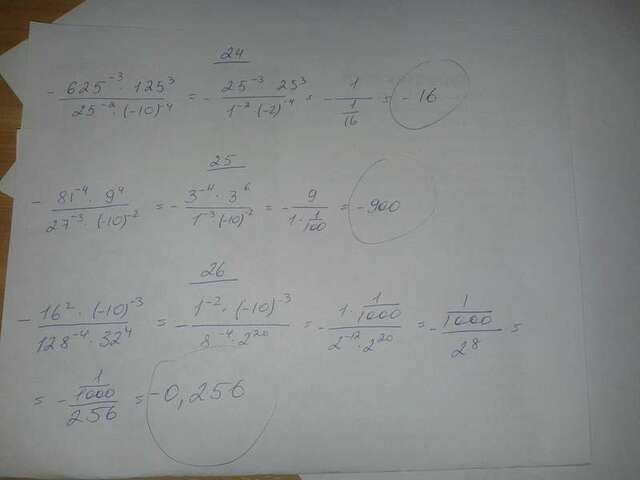 24
- 625⁻³ · 125³ / 25⁻² · (-10)⁻⁴ = - 25⁻³ · 25³ / 1⁻² (-2)⁻⁴ = - 1 / (1/16) = -16
25
- 81⁻⁴ · 9⁴ / 27⁻³ · (-10)⁻² = - 3⁻⁴ · 3⁶ / 1⁻³ (-10)⁻² = - 9 / (1 · 1/100) = -900
26
- 16² · (-10)⁻³ / 128⁻⁴ · 32⁴ = - 1⁻² · (-10)⁻³ / 8⁻⁴ · 2²⁰ = - 1 · 1/1000 / 2⁻¹² · 2²⁰ = - (1/1000) / 2⁸ =
= - (1/1000) / 256 = -0,256